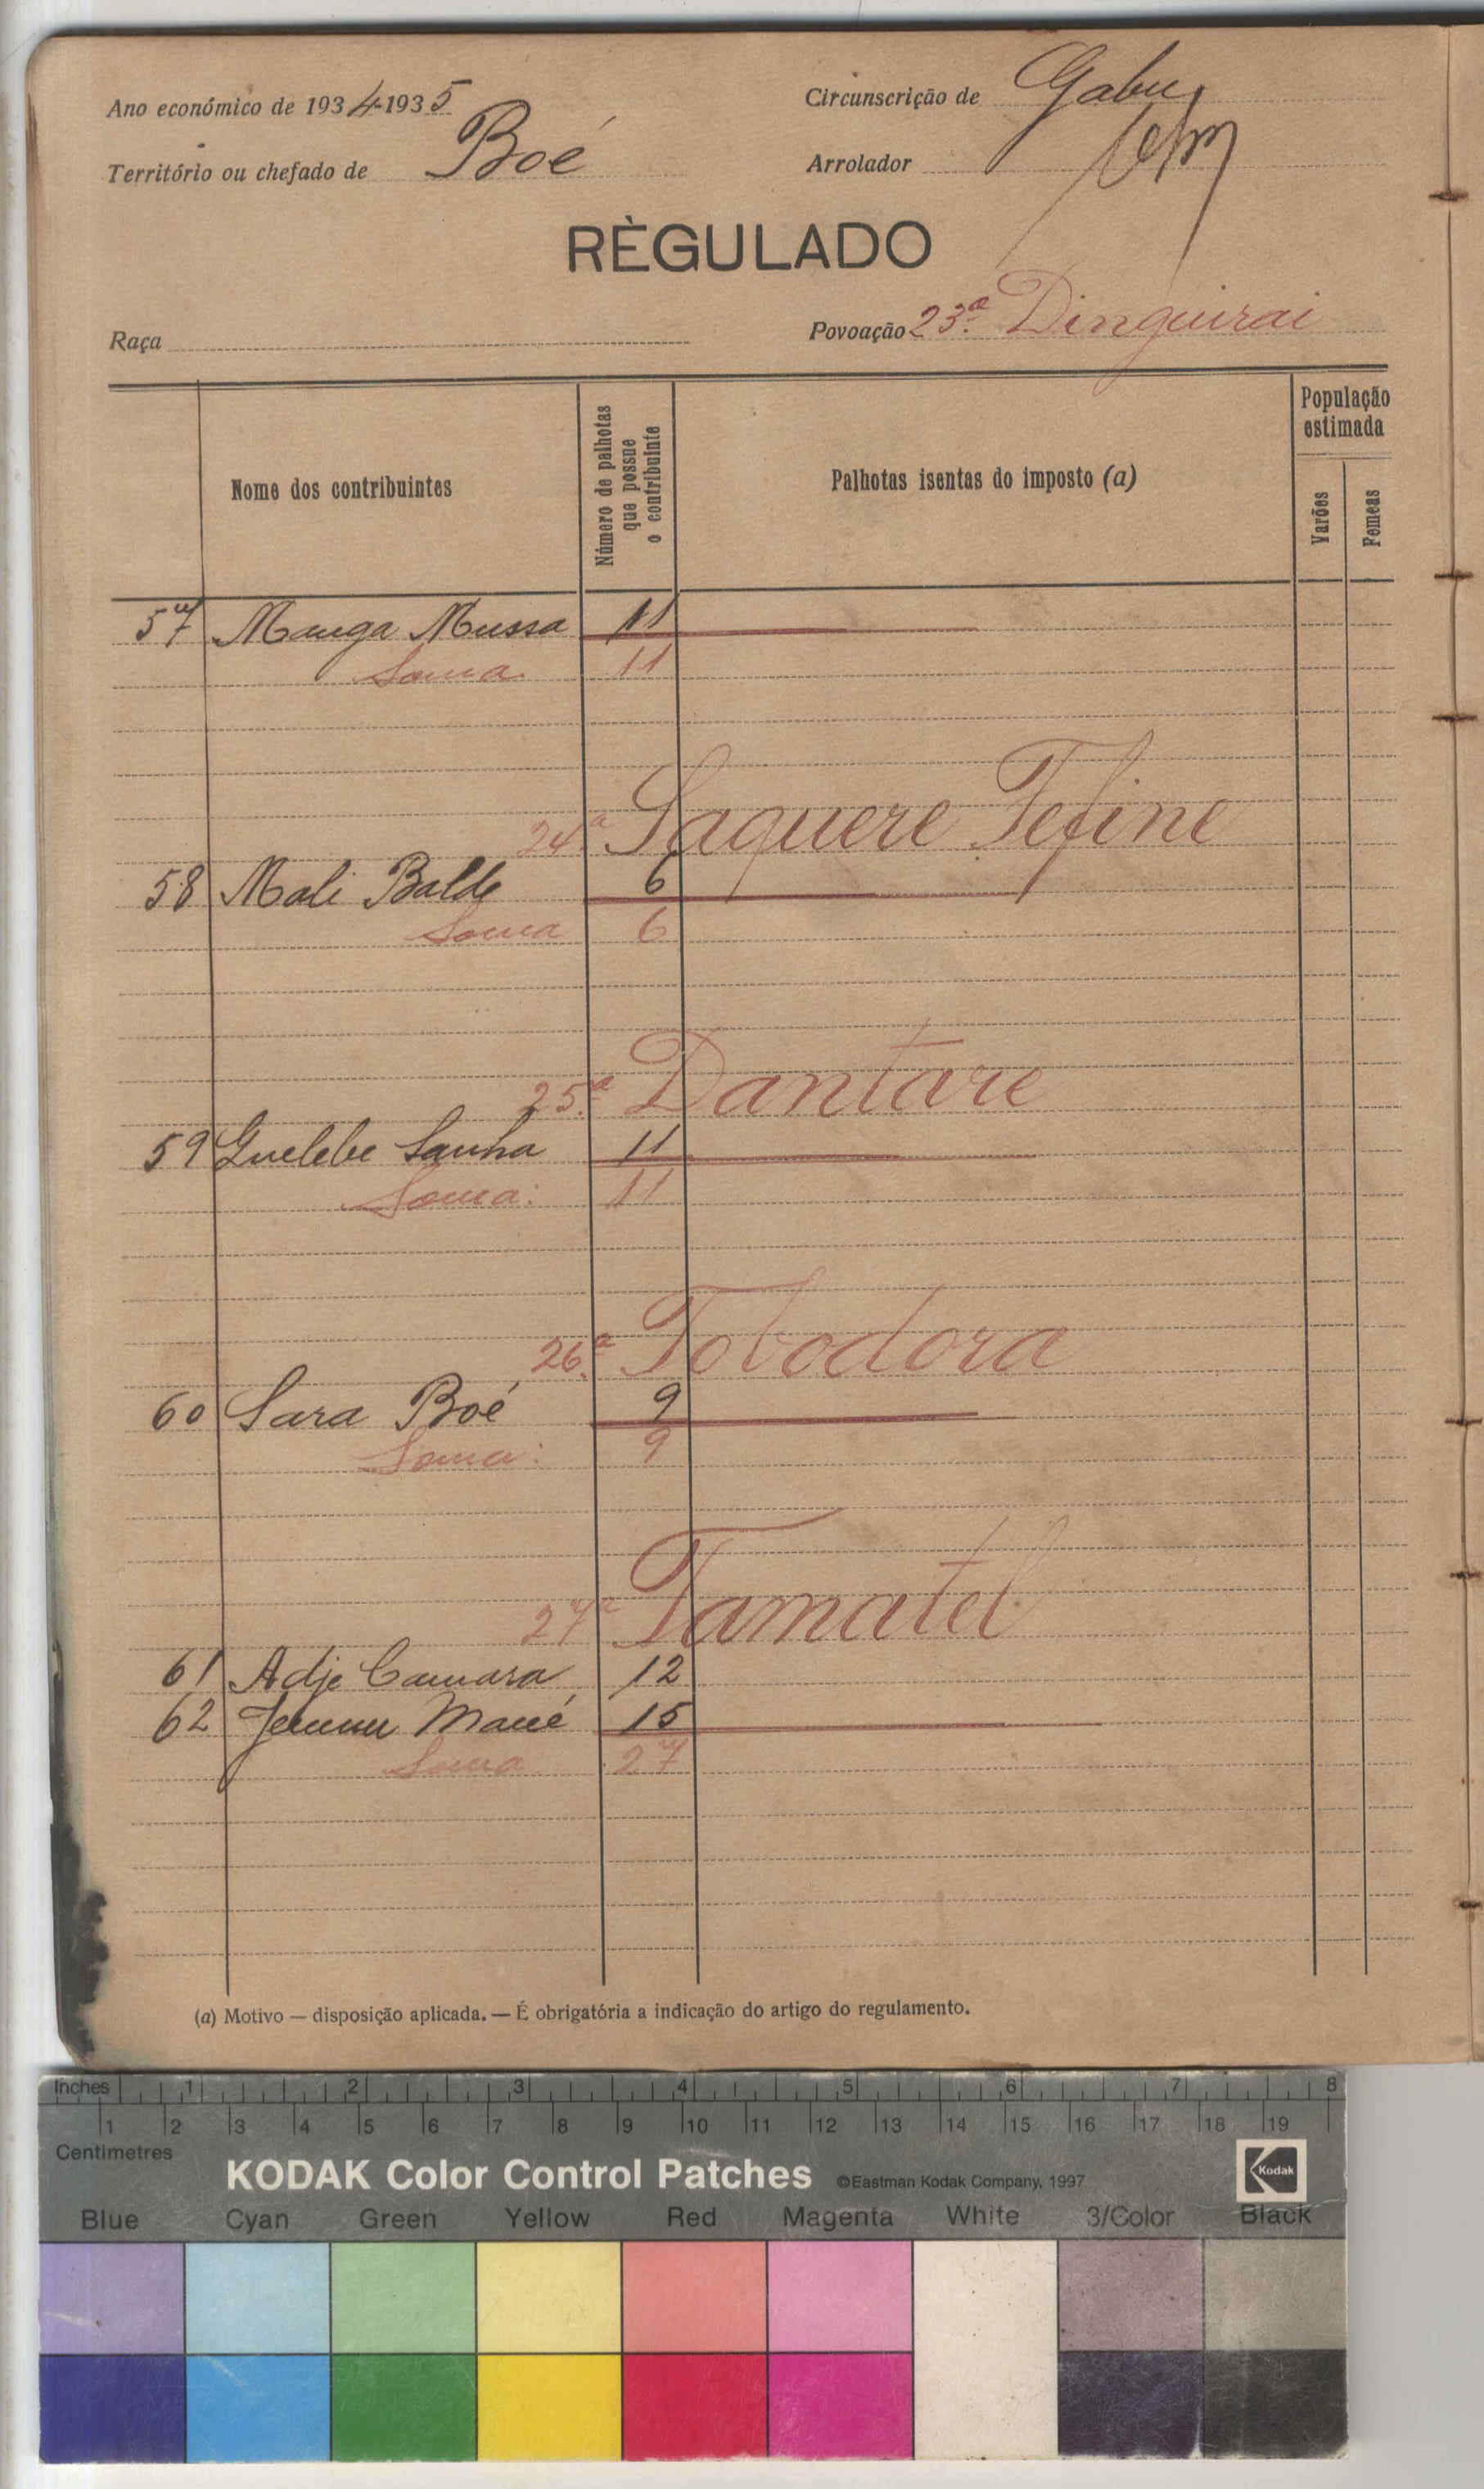 Ano económico de 1934-1935 Circunscrição de Gabu
Território ou chefado de Boé Arrolador
RÈGULADO
Raça Povoação 23.ª Dinguirai
Nome dos contribuintes
Número de palhotas que possue o contribuinte
Palhotas isentas do imposto (a)
População estimada
Varões
Femeas
57 Manga Mussa 11
Soma 11
24.ª Saquere Tefine
58 Mali Balde 6
Soma 6
25.ª Dantare
59 Guelebe Sanha 11
Soma: 11
26.ª Tobodora
60 Sara Boé 9
Soma: 9
27.ª Tamatel
61 Adje Camara 12
62 Mané 15
Soma 27
(a) Motivo — disposição aplicada. — É obrigatória a indicação do artigo do regulamento.
Inches 1 2 3 4 5 6 7 8
1 2 3 4 5 6 7 8 9 10 11 12 13 14 15 16 17 18 19
Centimetres
KODAK Color Control Patches ©Eastman Kodak Company, 1997 Kodak
Blue Cyan Green Yellow Red Magenta White 3/Color Black